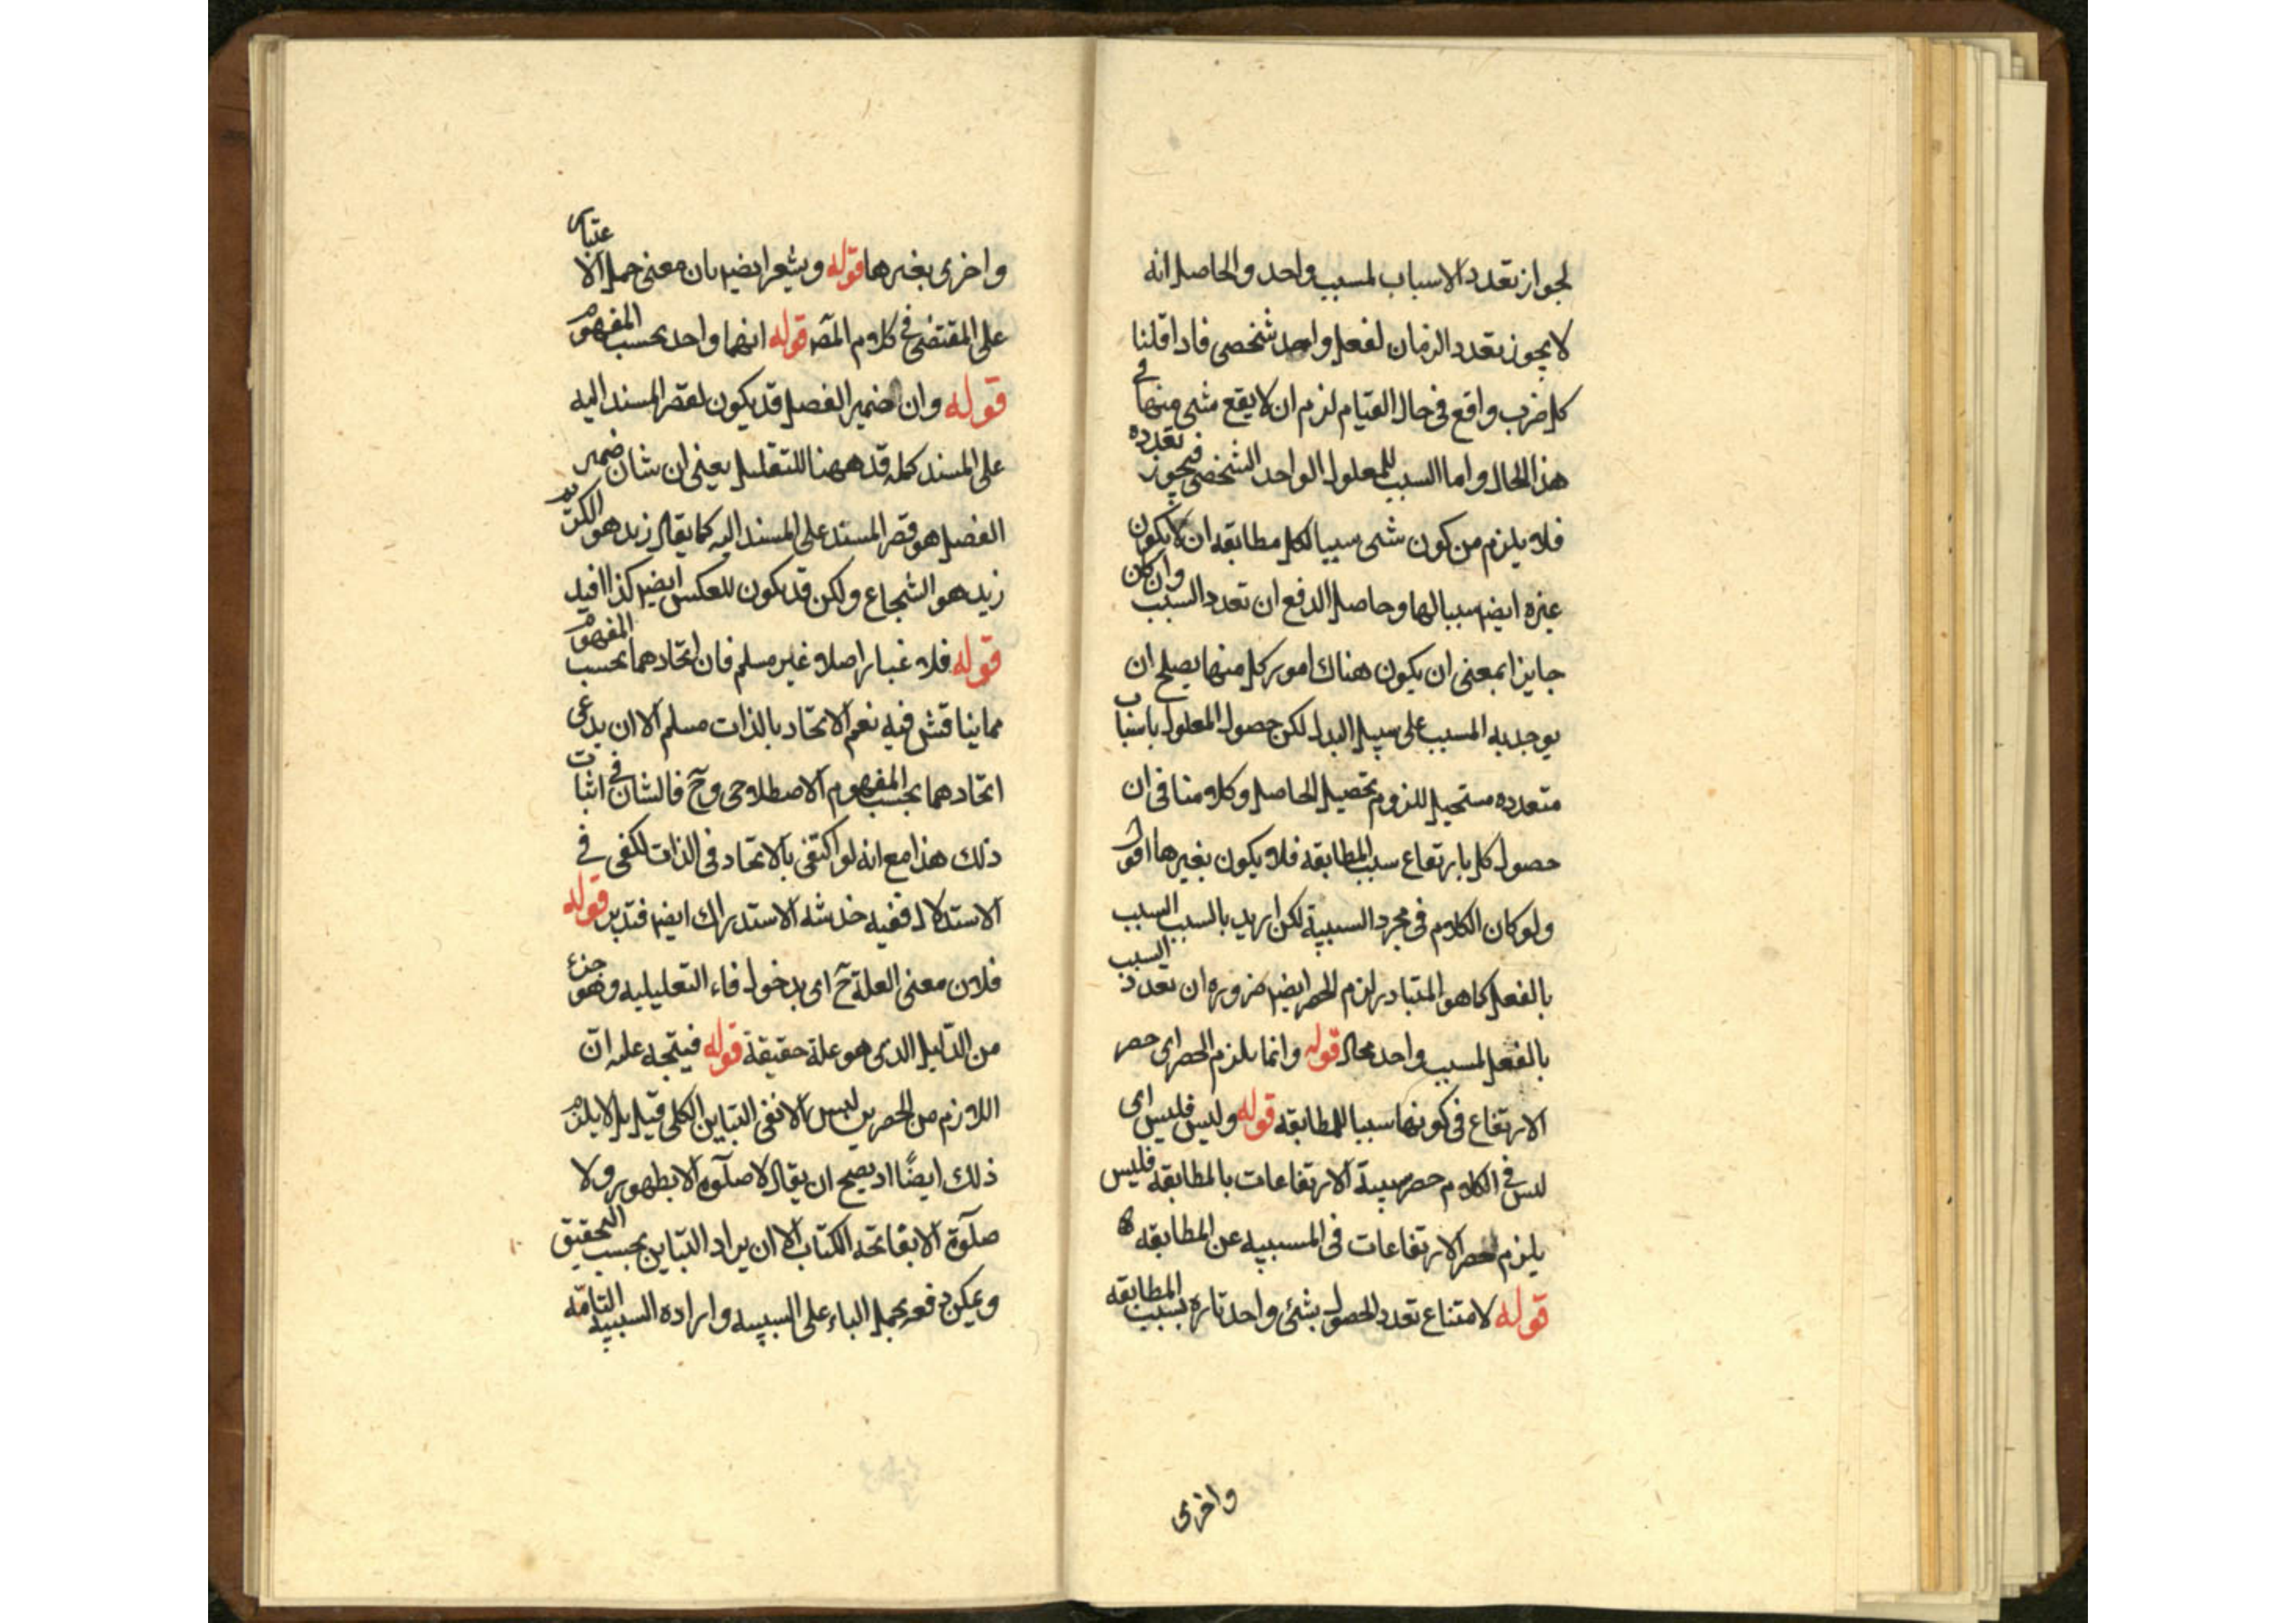 لجواز تعدد الاسباب لمسبب واحد والحاصل انه
لا يجوز تعدد الزمان لفعل واحد شخصى فاذا قلنا
كل ضرب واقع فى حال القيام لزم ان لا يقع شى منها فى
هذا الحال واما السبب للمعلول الواحد الشخصى فيجوز تعدده
فلا يلزم من كون شى سببا لكل مطابقه ان لا يكون
غيره ايضا سببا لها وحاصل الدفع ان تعدد السبب وان كان
جايزا بمعنى ان يكون هناك امور كل منها يصلح ان
يوجد به المسبب على سبيل البدل لكن حصول المعلول باسباب
متعدده مستحيل للزوم تحصيل الحاصل وكلامنا فى ان
حصول كل بارتفاع سبب المطابقه فلا يكون بغيرها اقول
ولو كان الكلام فى مجرد السببية لكن اريد بالسبب السبب
بالفعل كما هو المتبادر لزم الحصر ايضا ضروره ان تعدد السبب
بالفعل لمسبب واحد محال قوله وانما يلزم الحصر اى حصر
الارتفاع فى كونها سببا للمطابقه قوله وليس فليس اى
ليس فى الكلام حصر سببية الارتفاعات بالمطابقه فليس
يلزم حصر الارتفاعات فى المسببيه عن المطابقه
قوله لامتناع تعدد الحصول بشئ واحد تاره بسبب المطابقه
واخرى
واخرى بغيرها قوله ويشعر ايضا بان معنى حمل الاعتبار
على المقتضى فى كلام المص قوله انهما واحد بحسب المفهوم
قوله وان ضمير الفصل قد يكون لقصر المسند اليه
على المسند كمله قد ههنا للتقليل يعنى ان شان ضمير
الفصل هو قصر المسند على المسند اليه كما يقال زيد هو الكريم
زيد هو الشجاع ولكن قد يكون للعكس ايضا كذا افيد
قوله فلا غبار اصلا غير مسلم فان اتحادهما بحسب المفهوم
مما يناقش فيه نعم الاتحاد بالذات مسلم الا ان يدعى
اتحادهما بحسب المفهوم الاصطلاحى وح فالشان فى اثبات
ذلك هذا مع انه لو اكتفى بالاتحاد فى الذات لكفى فى
الاستدلال ففيه خدشه الاستدراك ايضا فتدبر قوله
فلان معنى العلة ح اى بدخول فاء التعليليه وهو جزء
من الدليل الذى هو علة حقيقة قوله فيتجه عليه ان
اللازم من الحصرين ليس الا نفى التباين الكلى قيل بل لا يلزم
ذلك ايضًا اذ يصح ان يقال لا صلوة الا بطهور ولا
صلوة الا بفاتحة الكتاب الا ان يراد التباين بحسب التحقيق
ويمكن دفعه بحمل الباء على السببيه واراده السببيه التامّه